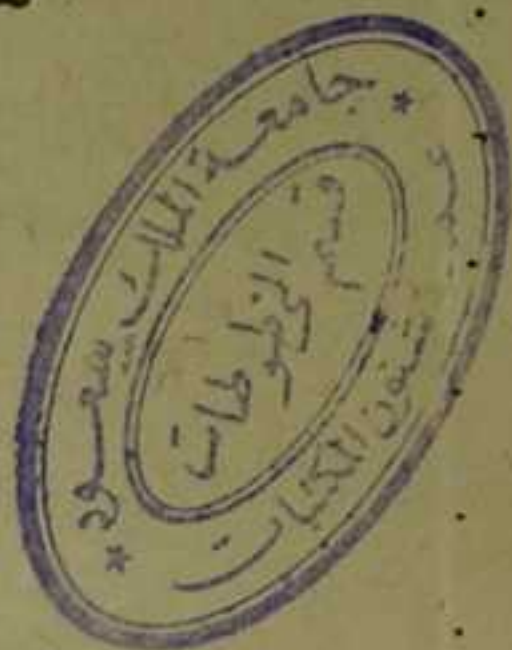 جامعة الملك سعود
عمادة شؤون المكتبات
قسم
المخطوطات